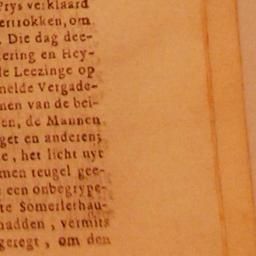 Prys verklaard
ertrokken, om
. Die dag dee-
ering en Hey-
le Leezinge op
melde Vergade-
nen van de bei-
en, de Mannen
get en anderen;
e, het licht uyt
men teugel gee-
een onbegrype-
te Somerlethau-
hadden, vermits
geregt, om den